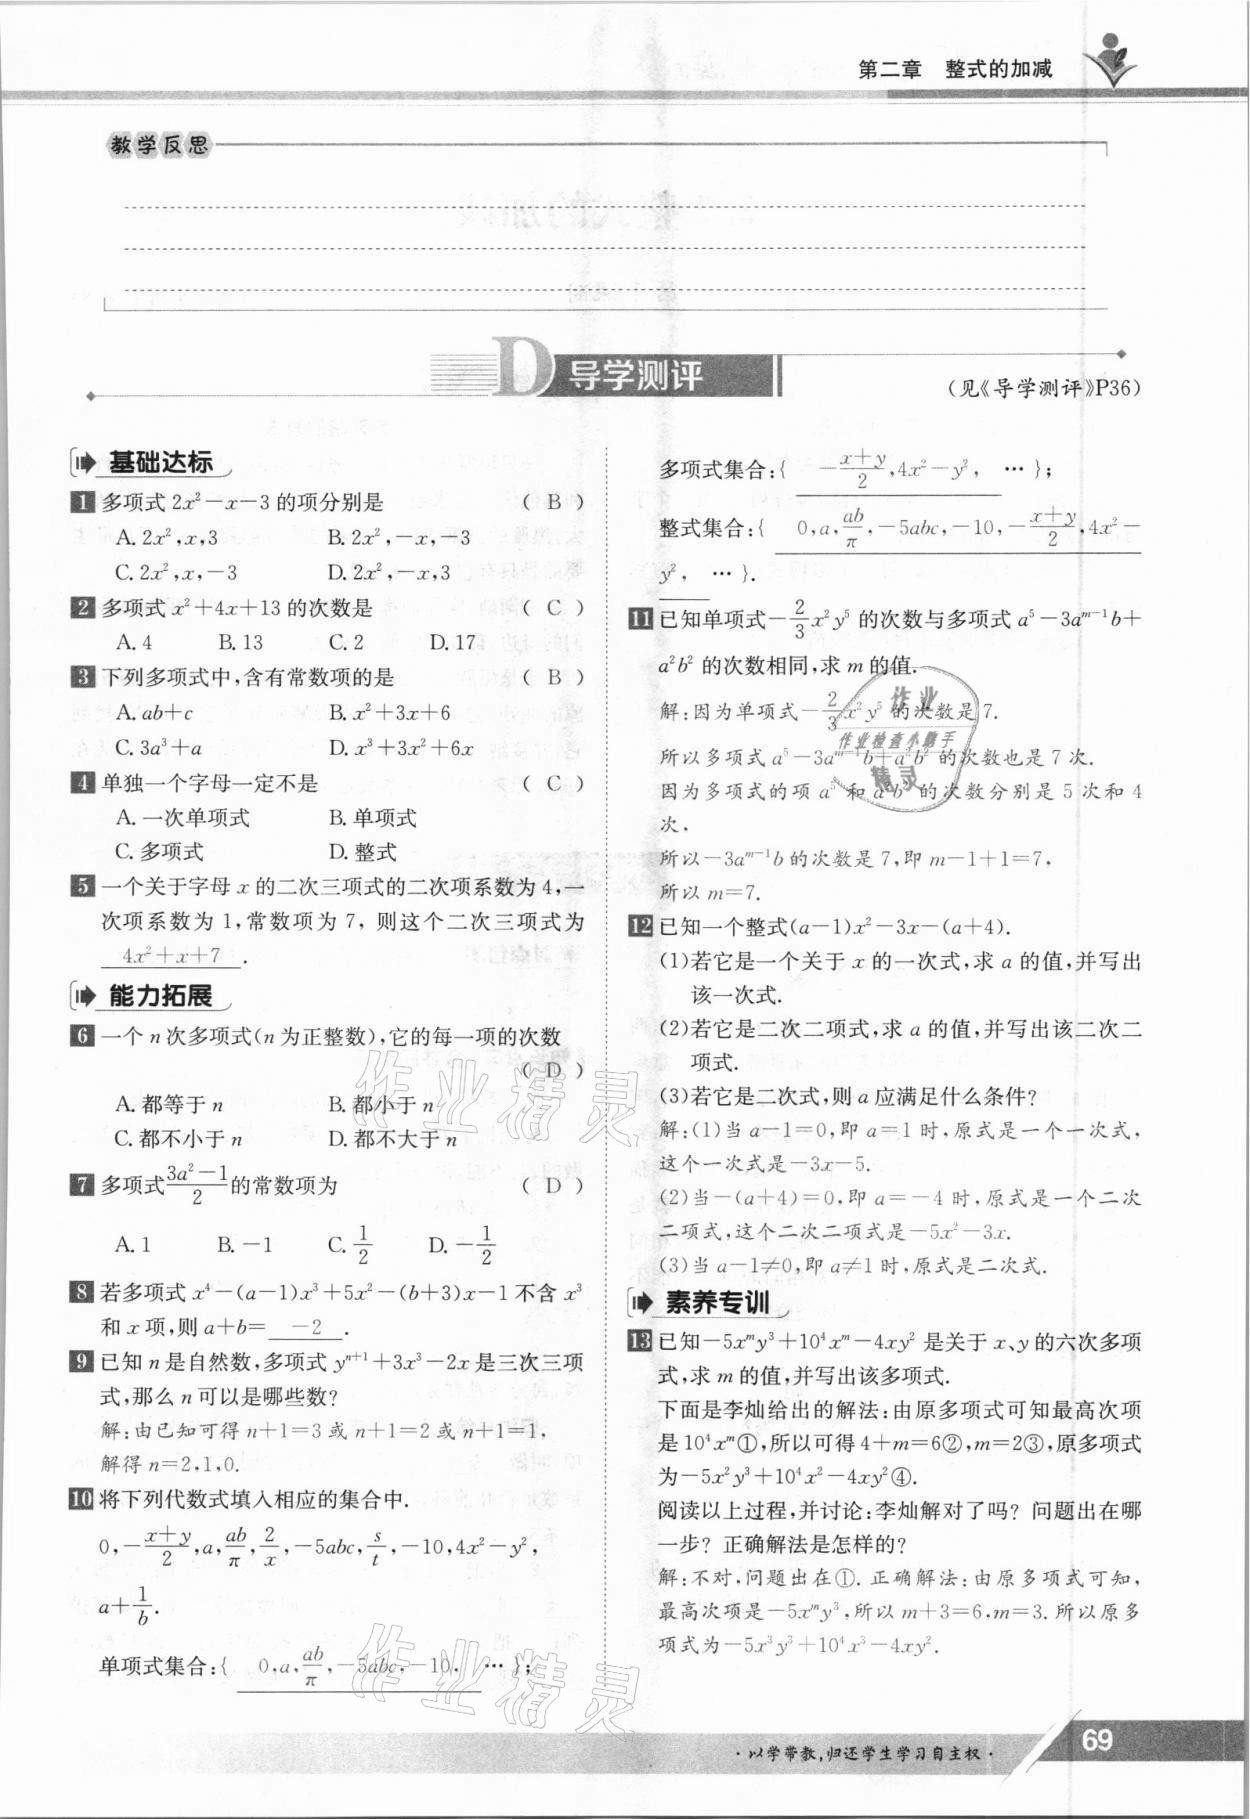 第二章 整式的加减
教学反思
D 导学测评
(见《导学测评》P36)
基础达标
1 多项式 2x²－x－3 的项分别是 ( B )
A. 2x²,x,3 B. 2x²,－x,－3
C. 2x²,x,－3 D. 2x²,－x,3
2 多项式 x²＋4x＋13 的次数是 ( C )
A. 4 B. 13 C. 2 D. 17
3 下列多项式中,含有常数项的是 ( B )
A. ab＋c B. x²＋3x＋6
C. 3a³＋a D. x³＋3x²＋6x
4 单独一个字母一定不是 ( C )
A. 一次单项式 B. 单项式
C. 多项式 D. 整式
5 一个关于字母 x 的二次三项式的二次项系数为 4,一
次项系数为 1,常数项为 7, 则这个二次三项式为
4x²＋x＋7 .
能力拓展
6 一个 n 次多项式(n 为正整数),它的每一项的次数
( D )
A. 都等于 n B. 都小于 n
C. 都不小于 n D. 都不大于 n
7 多项式(3a²－1)/2 的常数项为 ( D )
A. 1 B. －1 C. 1/2 D. －1/2
8 若多项式 x⁴－(a－1)x³＋5x²－(b＋3)x－1 不含 x³
和 x 项,则 a＋b＝ －2 .
9 已知 n 是自然数,多项式 yⁿ⁺¹＋3x³－2x 是三次三项
式,那么 n 可以是哪些数?
解:由已知可得 n＋1＝3 或 n＋1＝2 或 n＋1＝1,
解得 n＝2,1,0.
10 将下列代数式填入相应的集合中.
0,－(x＋y)/2,a,ab/π,2/x,－5abc,s/t,－10,4x²－y²,
a＋1/b.
单项式集合:{ 0,a,ab/π,－5abc,－10, … };
多项式集合:{ －(x＋y)/2,4x²－y², … };
整式集合:{ 0,a,ab/π,－5abc,－10,－(x＋y)/2,4x²－
y², … }.
11 已知单项式－2/3x²y⁵ 的次数与多项式 a⁵－3aᵐ⁻¹b＋
a²b² 的次数相同,求 m 的值.
解:因为单项式－2/3x²y⁵ 的次数是 7.
所以多项式 a⁵－3aᵐ⁻¹b＋a²b² 的次数也是 7 次.
因为多项式的项 a⁵ 和 a²b² 的次数分别是 5 次和 4
次.
所以－3aᵐ⁻¹b 的次数是 7,即 m－1＋1＝7,
所以 m＝7.
12 已知一个整式(a－1)x²－3x－(a＋4).
(1)若它是一个关于 x 的一次式,求 a 的值,并写出
该一次式.
(2)若它是二次二项式,求 a 的值,并写出该二次二
项式.
(3)若它是二次式,则 a 应满足什么条件?
解:(1)当 a－1＝0,即 a＝1 时,原式是一个一次式,
这个一次式是－3x－5.
(2)当－(a＋4)＝0,即 a＝－4 时,原式是一个二次
二项式,这个二次二项式是－5x²－3x.
(3)当 a－1≠0,即 a≠1 时,原式是二次式.
素养专训
13 已知－5xᵐy³＋10⁴xᵐ－4xy² 是关于 x、y 的六次多项
式,求 m 的值,并写出该多项式.
下面是李灿给出的解法:由原多项式可知最高次项
是 10⁴xᵐ①,所以可得 4＋m＝6②,m＝2③,原多项式
为－5x²y³＋10⁴x²－4xy²④.
阅读以上过程,并讨论:李灿解对了吗? 问题出在哪
一步? 正确解法是怎样的?
解:不对,问题出在①. 正确解法:由原多项式可知,
最高次项是－5xᵐy³,所以 m＋3＝6,m＝3. 所以原多
项式为－5x³y³＋10⁴x³－4xy².
作业
作业检查小助手
精灵
作业精灵
作业精灵
·以学带教,归还学生学习自主权·
69